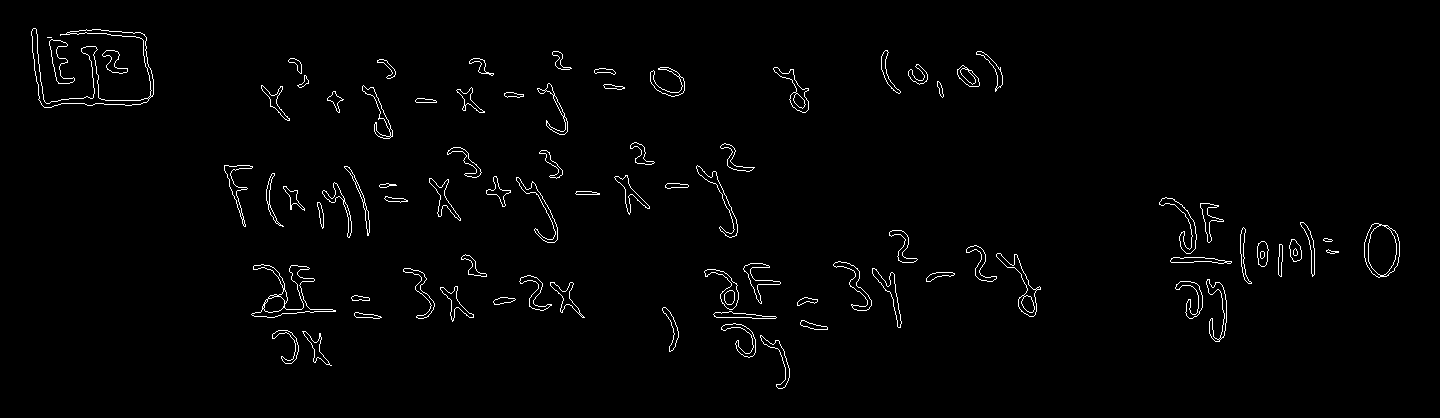 E12 x³ + y³ - x² - y² = 0 y (0,0)
F(x,y) = x³ + y³ - x² - y²
∂F/∂x = 3x² - 2x , ∂F/∂y = 3y² - 2y ∂F/∂y (0,0) = 0